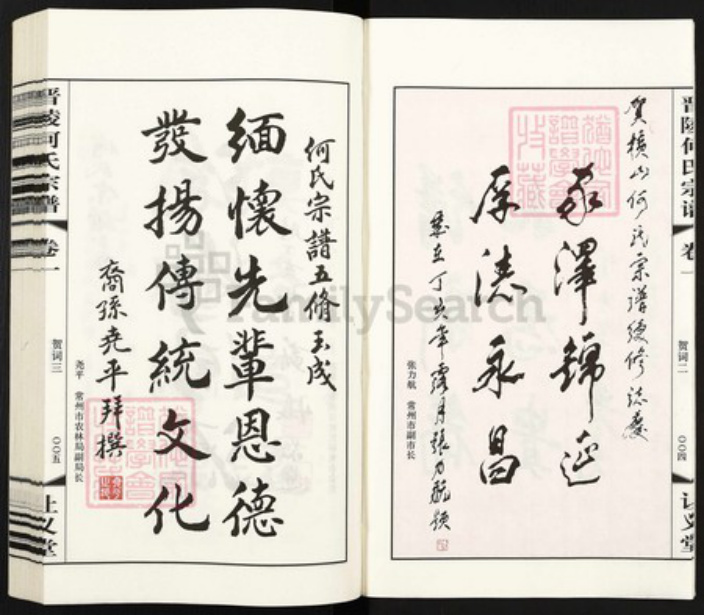 晋陵何氏宗谱
卷一
贺词二
〇〇四
贺横山何氏宗谱续修志庆
家泽锦延
厚德永昌
岁在丁亥年露月张力航题
张力航 常州市副市长
何氏宗譜五修玉成
緬懷先輩恩德
發揚傳統文化
裔孫尧平拜撰
尧平 常州市农林局副局长
晋陵何氏宗谱
卷一
贺词三
〇〇五
FamilySearch